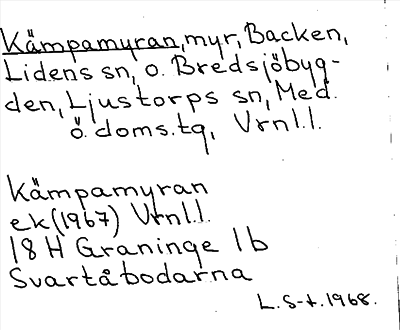 Kämpamyran, myr, Backen,
Lidens sn, o. Bredsjöbyg-
den, Ljustorps sn, Med.
ö. doms.tg, Vrnl.l.
Kämpamyran
ek (1967) Vrnl.l.
18 H Graninge 1b
Svartåbodarna
L. S-t. 1968.